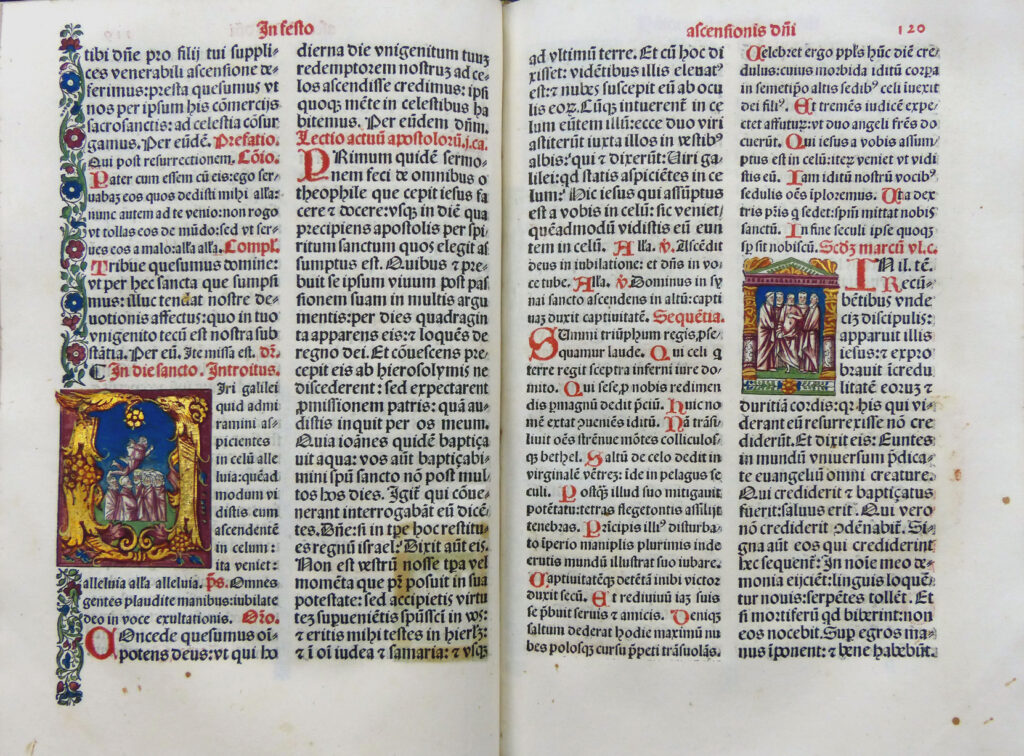 In festo
tibi dñe pro filij tui suppli=
ces venerabili ascensione de=
ferimus: presta quesumus vt
nos per ipsum his cõmercijs
sacrosanctis: ad celestia cõsur
gamus. Per eũdẽ. Prefatio.
Qui post resurrectionem. Cõio.
Pater cum essem cũ eis: ego ser=
uabaz eos quos dedisti mihi alla:
nunc autem ad te venio: non rogo
vt tollas eos de mũdo: sed vt ser=
ues eos a malo: alla alla. Compl.
Tribue quesumus domine:
vt per hec sancta que sumpsi
mus: illuc tendat nostre de=
uotionis affectus: quo in tuo
vnigenito tecũ est nostra sub
stãtia. Per eũ. Ite missa est. dr̃.
In die sancto. Introitus.
Viri galilei
quid admi
ramini as=
picientes
in celũ alle
luia: quẽad
modum vi
distis eum
ascendentẽ
in celum:
ita veniet:
alleluia alla alleluia. p̃s. Omnes
gentes plaudite manibus: iubilate
deo in voce exultationis. Oro.
Concede quesumus oĩ=
potens deus: vt qui ho
dierna die vnigenitum tuuz
redemptorem nostruz ad ce=
los ascendisse credimus: ipsi
quoqz mẽte in celestibus ha
bitemus. Per eũdem dñm.
Lectio actuũ apostolorũ. j. ca.
PRimum quidẽ sermo=
nem feci de omnibus o
theophile que cepit iesus fa
cere ⁊ docere: vsqz in diẽ qua
precipiens apostolis per spi=
ritum sanctum quos elegit as
sumptus est. Quibus ⁊ pre=
buit se ipsum viuum post pas
sionem suam in multis argu
mentis: per dies quadragin
ta apparens eis: ⁊ loquẽs de
regno dei. Et cõuescens pre=
cepit eis ab hierosolymis ne
discederent: sed expectarent
promissionem patris: quã au=
distis inquit per os meum.
Quia ioãnes quidẽ baptiça
uit aqua: vos aũt baptiçabi
mini spũ sancto nõ post mul
tos hos dies. Igit̃ qui cõue=
nerant interrogabãt eũ dicẽ=
tes. Dñe: si in tp̃e hoc restitu=
es regnũ israel? Dixit aũt eis.
Non est vestrũ nosse tp̃a vel
momẽta que pr̃ posuit in sua
potestate: sed accipietis virtu
tez supueniẽtis spũssci in vos:
⁊ eritis mihi testes in hierlz:
⁊ ĩ oĩ iudea ⁊ samaria: ⁊ vsqz
ascensionis dñi
120
ad vltimũ terre. Et cũ hoc di
xisset: vidẽtibus illis eleuatꝰ
est: ⁊ nubes suscepit eũ ab ocu
lis eoꝝ. Cũqz intuerent̃ in ce
lum eũtem illũ: ecce duo viri
astiterũt iuxta illos in vestibꝰ
albis: qui ⁊ dixerũt: Uiri ga=
lilei: qd statis aspiciẽtes in ce
lum? Hic iesus qui assũptus
est a vobis in celũ: sic veniet
quẽadmodũ vidistis eũ eun
tem in celũ. Alla. ℣. Ascẽdit
deus in iubilatione: et dñs in vo
ce tube. Alla. ℣. Dominus in sy
nai sancto ascendens in altũ: capti
uaz duxit captiuitatẽ. Sequẽtia.
SUmni triũphum regis, pse=
quamur laude. Qui celi q̃
terre regit sceptra inferni iure do=
mito. Qui sese, pro nobis redimen
dis pmagnũ dedit p̃ciũ. Huic no=
mẽ extat queniẽs iditũ. Nã trãsi=
liuit oẽs strẽnue mõtes colliculosqz
bethel. Saltũ de celo dedit in
virginalẽ vẽtrez: ide in pelagus se
culi. Postqz illud suo mitigauit
potẽtatu: tetras flegetontis assilijt
tenebras. Principis illiꝰ disturba=
to ĩperio maniplis plurimis inde
erutis mundũ illustrat suo iubare.
Captiuitatẽqz detẽtã inibi victor
duxit secũ. Et rediuiuũ iaz suis
se p̃buit seruis ⁊ amicis. Deniqz
saltum dederat hodie maximũ nu=
bes polosqz cursu p̃peti trãsuolãs.
Celebret ergo ppl̃s hũc diẽ cre=
dulus: cuius morbida iditũ corpa
in semetipo altis sedibꝰ celi inuexit
dei filiꝰ. Et tremẽs iudicẽ expe=
ctat affuturũ: vt duo angeli frẽs do
cuerũt. Qui iesus a vobis assum
ptus est in celũ: iterũ veniet vt vidi
stis eũ. Iam iditũ nostrũ vocibꝰ
sedulis oẽs ĩploremus. Uta dex
tris p̃ris q̃ sedet: spm̃ mittat nobis
sanctũ. In fine seculi ipse quoqz
sp̃ sit nobiscũ. Scdz marcũ vl. c.
IN il. tẽ.
Recũ=
bẽtibus vnde
cĩz discipulis:
apparuit illis
iesus: ⁊ expro
brauit ĩcredu
litatẽ eoruz ⁊
duritiã cordis: qr his qui vi=
derant eũ resurrexisse nõ cre
diderũt. Et dixit eis: Euntes
in mundũ vniuersum p̃dica=
te euangeliũ omni creature.
Qui crediderit ⁊ baptiçatus
fuerit: saluus erit. Qui vero
nõ crediderit cõdẽnabit̃. Si=
gna aũt eos qui crediderint
hec sequent̃: In noĩe meo de=
monia eijciẽt: linguis loquẽ=
tur nouis: serpẽtes tollẽt. Et
si mortiferũ qd biberint: non
eos nocebit. Sup egros ma=
nus ĩponent: ⁊ bene habebũt.